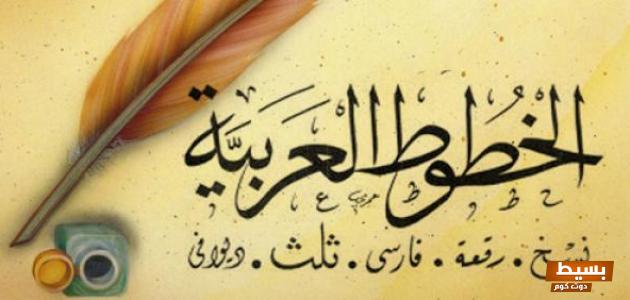 الخُطُوط العَرَبيَّة
نسخ . رقعة . فارسى . ثلث . ديوانى
بسيط
دوت كوم